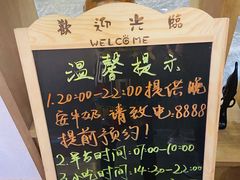 歡迎光臨
WELCOME
温馨提示
1.20:00-22:00提供晚
安牛奶 请致电:8888
提前预约!
2.早茶时间:07:00-10:00
3.小吃时间:14:30-22:00